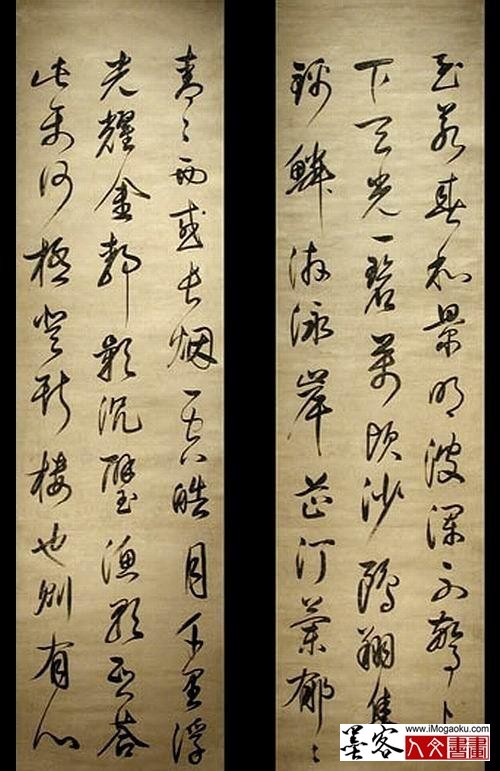 至若春和景明波瀾不驚上
下天光一碧萬頃沙鷗翔集
錦鱗游泳岸芷汀蘭郁〻
青〻而或長烟一空皓月千里浮
光耀金靜影沉璧漁歌互答
此樂何極登斯樓也則有心
墨客
www.iMogaoku.com
人文書畫